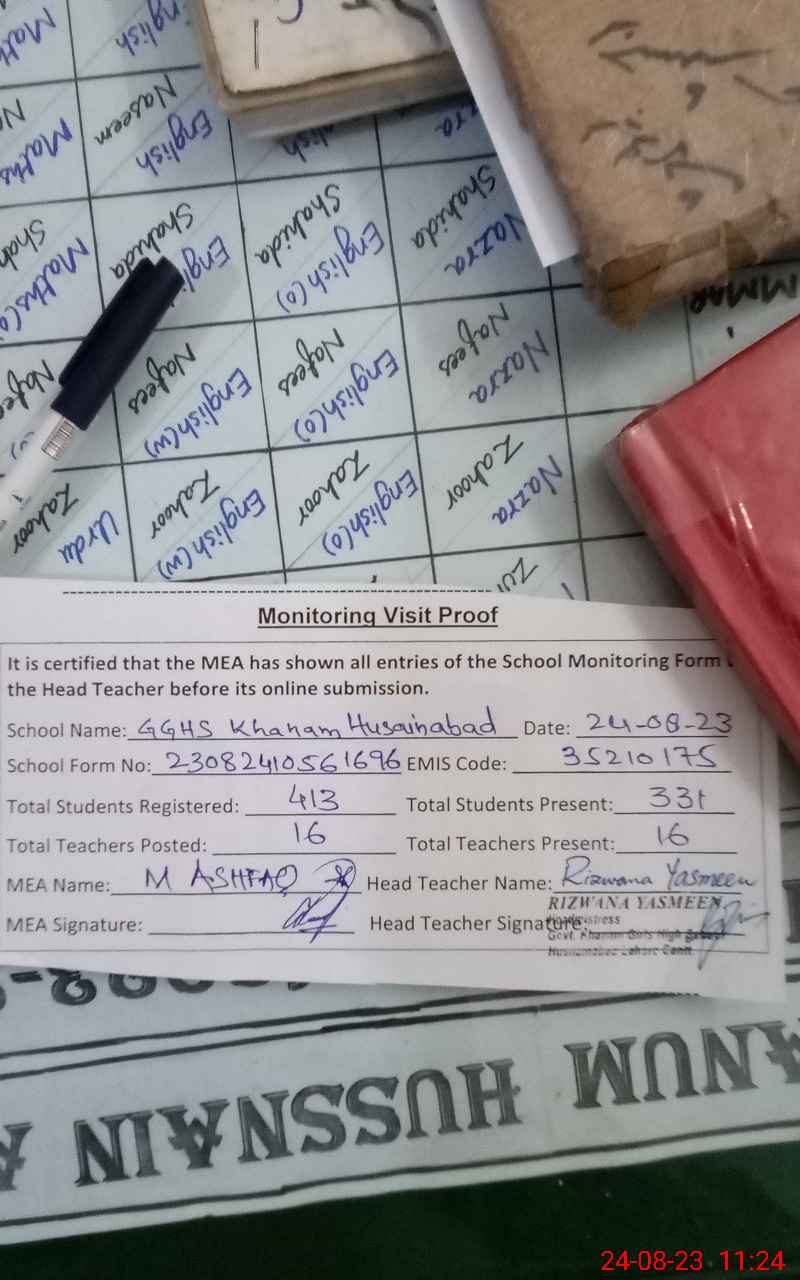 Math
English
English
Naseem
Maths
English
Shahida
Nazra
Shahida
English(o)
Shahida
Maths(o)
Nafees
Nazra
Nafees
English(o)
Nafees
English(w)
Zahoor
Nazra
Zahoor
English(o)
Zahoor
English(w)
Zahoor
Urdu
Monitoring Visit Proof
It is certified that the MEA has shown all entries of the School Monitoring Form
the Head Teacher before its online submission.
School Name: GGHS Khanam Husainabad Date: 24-08-23
School Form No: 23082410561696 EMIS Code: 35210175
Total Students Registered: 413 Total Students Present: 331
Total Teachers Posted: 16 Total Teachers Present: 16
MEA Name: M ASHFAQ Head Teacher Name: Rizwana Yasmeen
MEA Signature: Head Teacher Signature:
RIZWANA YASMEEN
Headmistress
Govt. Khanam Girls High School
Husnainabad Lahore Cantt.
ANUM HUSSNAIN A
24-08-23 11:24